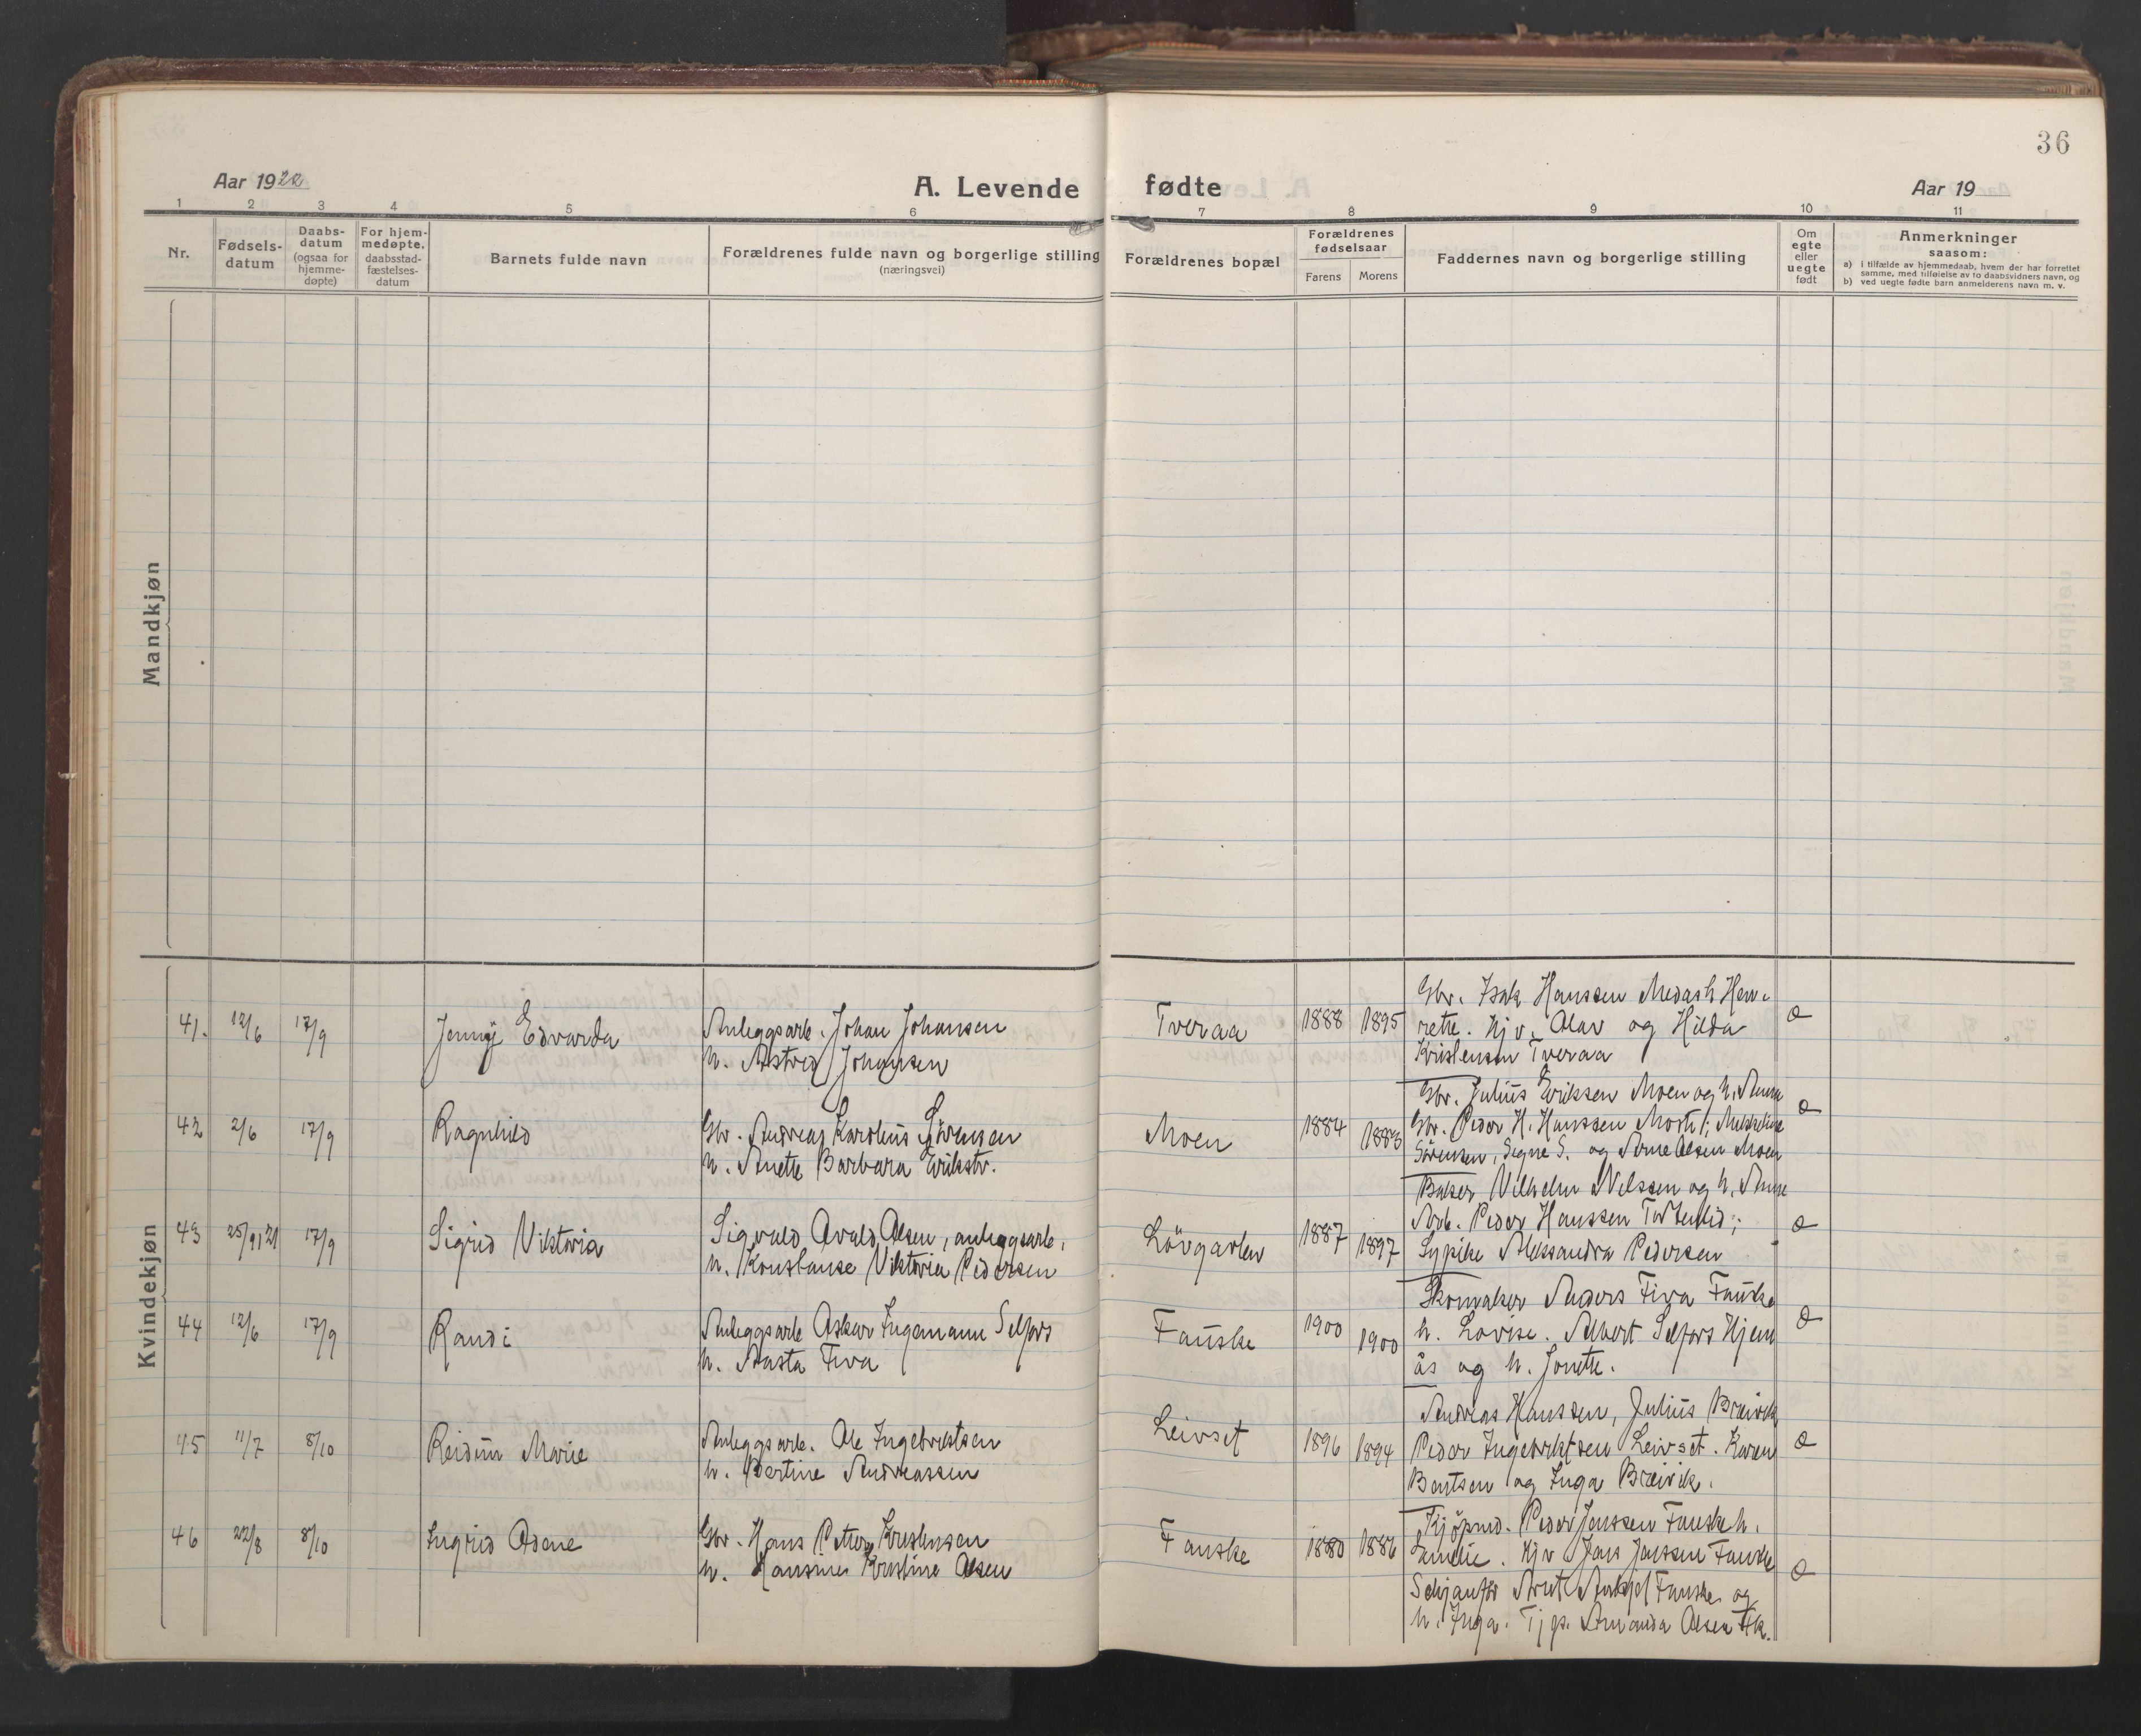 36
Aar 1922
A. Levende fødte
Aar 19
1 2 3 4 5 6 7 8 9 10 11
Nr.
Fødsels-
datum
Daabs-
datum
(ogsaa for
hjemme-
døpte)
For hjem-
medøpte,
daabsstad-
fæstelses-
datum
Barnets fulde navn
Forældrenes fulde navn og borgerlige stilling
(næringsvei)
Forældrenes bopæl
Forældrenes
fødselsaar
Farens Morens
Faddernes navn og borgerlige stilling
Om
egte
eller
uegte
født
Anmerkninger
saasom:
a) i tilfælde av hjemmedaab, hvem der har forrettet
samme, med tilføielse av to daabsvidners navn, og
b) ved uegte fødte barn anmelderens navn m. v.
Mandkjøn
Kvindekjøn
41. 12/6 17/9
Jenny Edvarda
Anleggsarb. Johan Johansen
h. Astrid Johansen
Tveraa
1888 1895
Gbr. Isak Hanssen Medaas h. Hen-
rette. Kjv. Olav og Hilda
Kristensen Tveraa
42 2/6 17/9
Ragnhild
Gbr. Andreas Karolius Sörensen
h. Anette Barbara Erikstr.
Moen
1884 1883
Gbr. Julius Eriksen Moen og h. Anna
Gbr. Peder H. Hanssen
Sörensen, Signe S. og Arne Olsen Moen
43 25/9 21 17/9
Sigrid Viktoria
Sigvald Avald Olsen, anleggsarb.
h. Konstanse Viktoria Pedersen
Lövgavlen
1887 1897
Baker Vilhelm Nilssen og h. Anne
Arb. Peder Hanssen
Sypike Aleksandra Pedersen
44 12/6 17/9
Randi
Anleggsarb Oskar Ingemann Selfors
h. Aasta Fiva
Fauske
1900 1900
Skomaker Anders Fiva Fauske
h. Lovise. Albert Selfors Hjem
ås og h. Jonette.
45 11/7 8/10
Reidun Marie
Anleggsarb. Ole Ingebriktsen
h. Bertine Andreassen
Leivset
1896 1894
Andreas Hanssen, Julius Breivik
Peder Ingebriktsen Leivset. Karen
Bentsen og Inga Breivik.
46 22/8 8/10
Ingrid Odene
Gbr. Hans Petter Kristensen
h. Hansine Kristine Olsen
Fauske
1880 1886
Kjöpmd. Peder Jenssen Fauske h.
Amelie. Kjv Jens Jenssen Fauske
Fauske og
h. Inga. Tjp. Amanda Olsen Fsk.